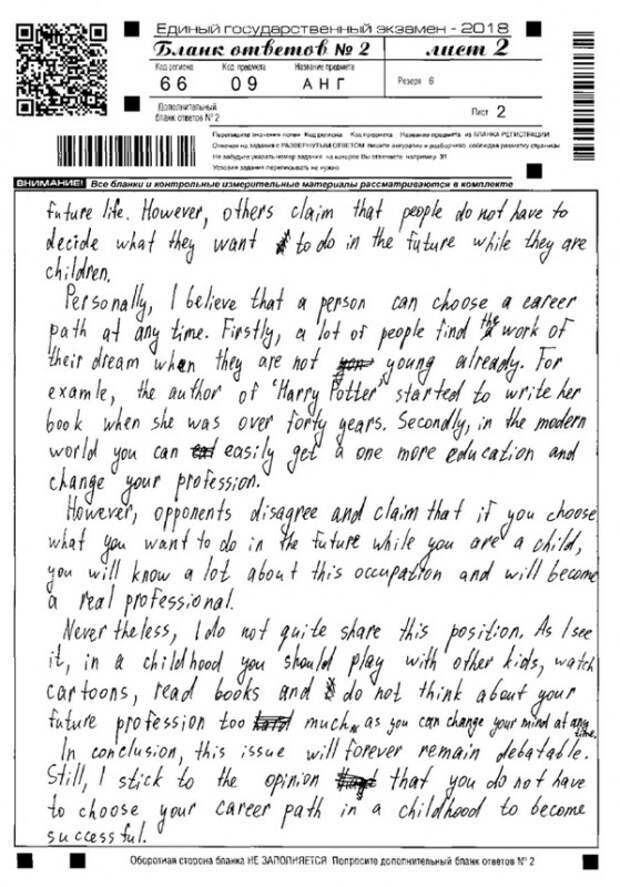 Единый государственный экзамен - 2018
Бланк ответов № 2 лист 2
Код региона Код предмета Название предмета
66 09 АНГ Резерв 6
Дополнительный
бланк ответов № 2 Лист 2
Перепишите значения полей Код региона Код предмета Название предмета из БЛАНКА РЕГИСТРАЦИИ
Отвечая на задания с РАЗВЕРНУТЫМ ОТВЕТОМ пишите аккуратно и разборчиво, соблюдая разметку страницы
Не забудьте указать номер задания на которое Вы отвечаете например 31
Условия задания переписывать не нужно
ВНИМАНИЕ! Все бланки и контрольные измерительные материалы рассматриваются в комплекте
future life. However, others claim that people do not have to
decide what they want to do in the future while they are
children.
Personally, I believe that a person can choose a career
path at any time. Firstly, a lot of people find the work of
their dream when they are not young already. For
examle, the author of 'Harry Potter' started to write her
book when she was over forty years. Secondly, in the modern
world you can easily get a one more education and
change your profession.
However, opponents disagree and claim that if you choose
what you want to do in the future while you are a child,
you will know a lot about this occupation and will become
a real professional.
Never theless, I do not quite share this position. As I see
it, in a childhood you should play with other kids, watch
cartoons, read books and do not think about your
future profession too much, as you can change your mind at any time.
In conclusion, this issue will forever remain debatable.
Still, I stick to the opinion that you do not have
to choose your career path in a childhood to become
successful.
Оборотная сторона бланка НЕ ЗАПОЛНЯЕТСЯ. Попросите дополнительный бланк ответов № 2